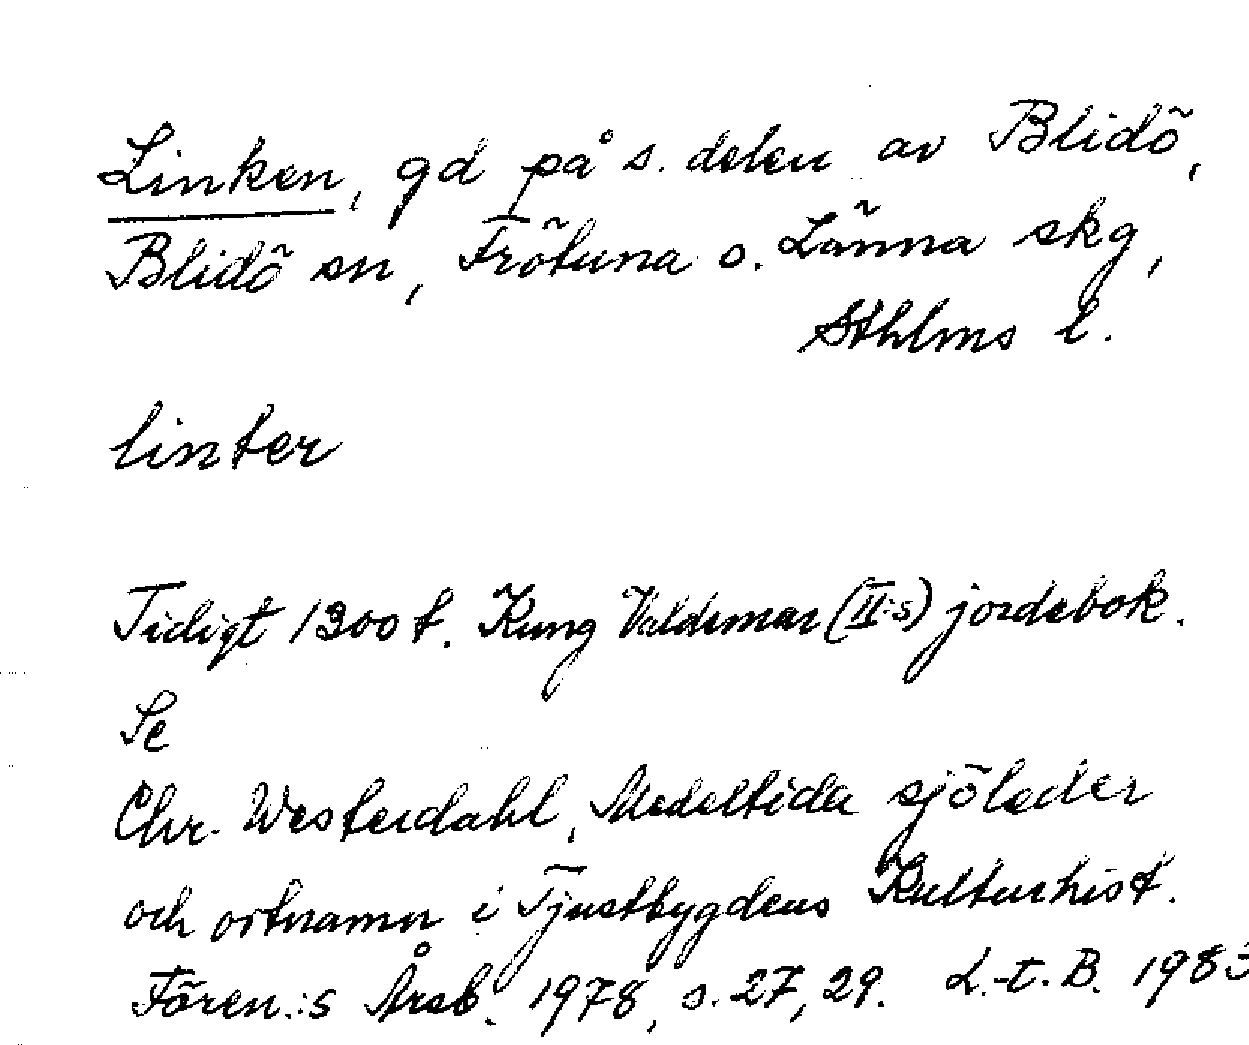 Linken, gd på s. delen av Blidö,
Blidö sn, Frötuna o. Länna skg,
Sthlms l.
linter
Tidigt 1300 t. Kung Valdemar (II:s) jordebok.
Se
Chr. Westerdahl, Medeltida sjöleder
och ortnamn i Tjustbygdens Kulturhist.
Fören.:s Årsb. 1978, s. 27, 29. L.-t. B. 1983